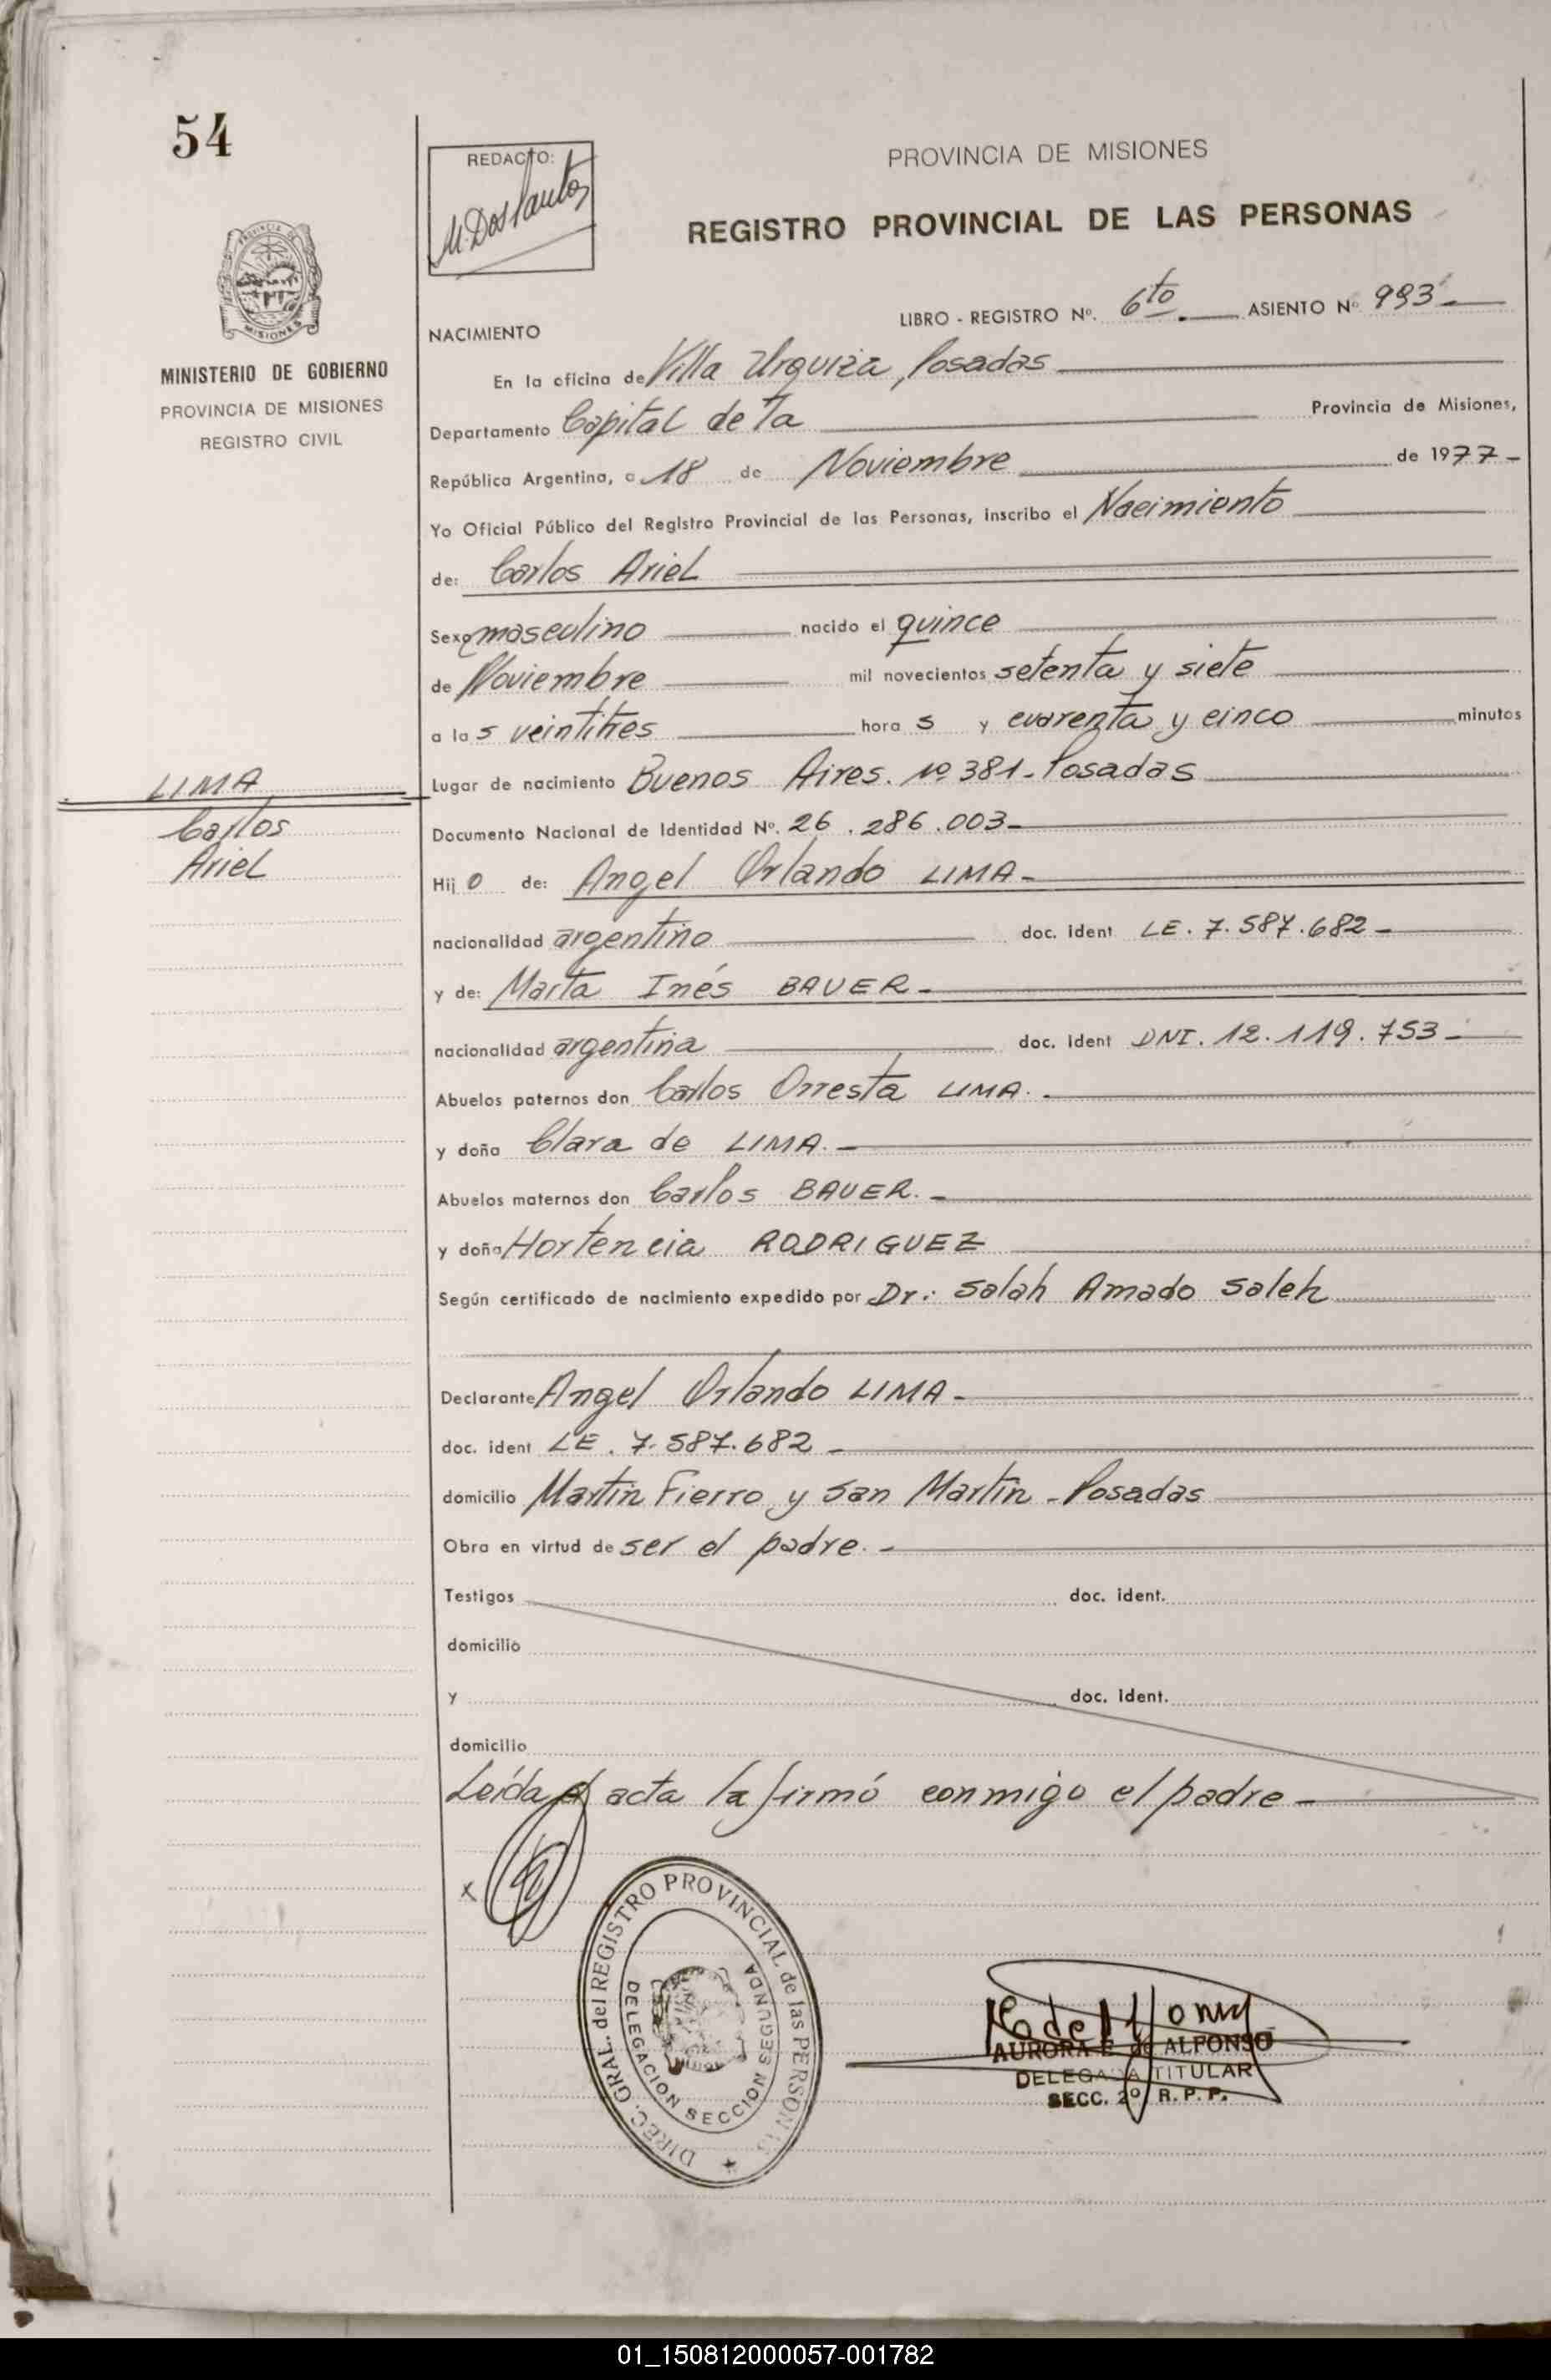 54
REDACTO:
M. Dos Santos
PROVINCIA DE MISIONES
REGISTRO PROVINCIAL DE LAS PERSONAS
LIBRO - REGISTRO Nº. 6to. ASIENTO Nº 993
MINISTERIO DE GOBIERNO
PROVINCIA DE MISIONES
REGISTRO CIVIL
NACIMIENTO
En la oficina de Villa Urquiza, Posadas
Departamento Capital de la Provincia de Misiones,
República Argentina, a 18 de Noviembre de 1977-
Yo Oficial Público del Registro Provincial de las Personas, inscribo el Nacimiento
de: Carlos Ariel
Sexo masculino nacido el quince
de Noviembre mil novecientos setenta y siete
a las veintitres horas y cuarenta y cinco minutos
LIMA
Carlos
Ariel
Lugar de nacimiento Buenos Aires. Nº 381- Posadas
Documento Nacional de Identidad Nº. 26.286.003-
Hijo de: Angel Orlando LIMA-
nacionalidad argentino doc. ident LE. 7.587.682-
y de: Marta Inés BAUER-
nacionalidad argentina doc. ident DNI. 12.119.753-
Abuelos paternos don Carlos Orresta LIMA.-
y doña Clara de LIMA.-
Abuelos maternos don Carlos BAUER.-
y doña Hortencia RODRIGUEZ
Según certificado de nacimiento expedido por Dr.: Salah Amado Saleh
Declarante Angel Orlando LIMA-
doc. ident LE. 7.587.682-
domicilio Martín Fierro y San Martín - Posadas
Obra en virtud de ser el padre.-
Testigos doc. ident.
domicilio
y doc. ident.
domicilio
Leída el acta la firmó conmigo el padre-
x
DIREC. GRAL. del REGISTRO PROVINCIAL de las PERSONAS
DELEGACION SECCION SEGUNDA
AURORA E de ALFONSO
DELEGADA TITULAR
SECC. 2º R.P.P.
01_150812000057-001782